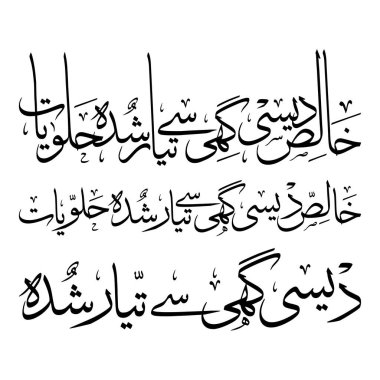 خالص دیسی گھی سے تیار شُدہ حلویات
خالصّ دیسی گھی سے تیار شُدہ حلوّیات
دیسی گھی سے تیّار شُدہ